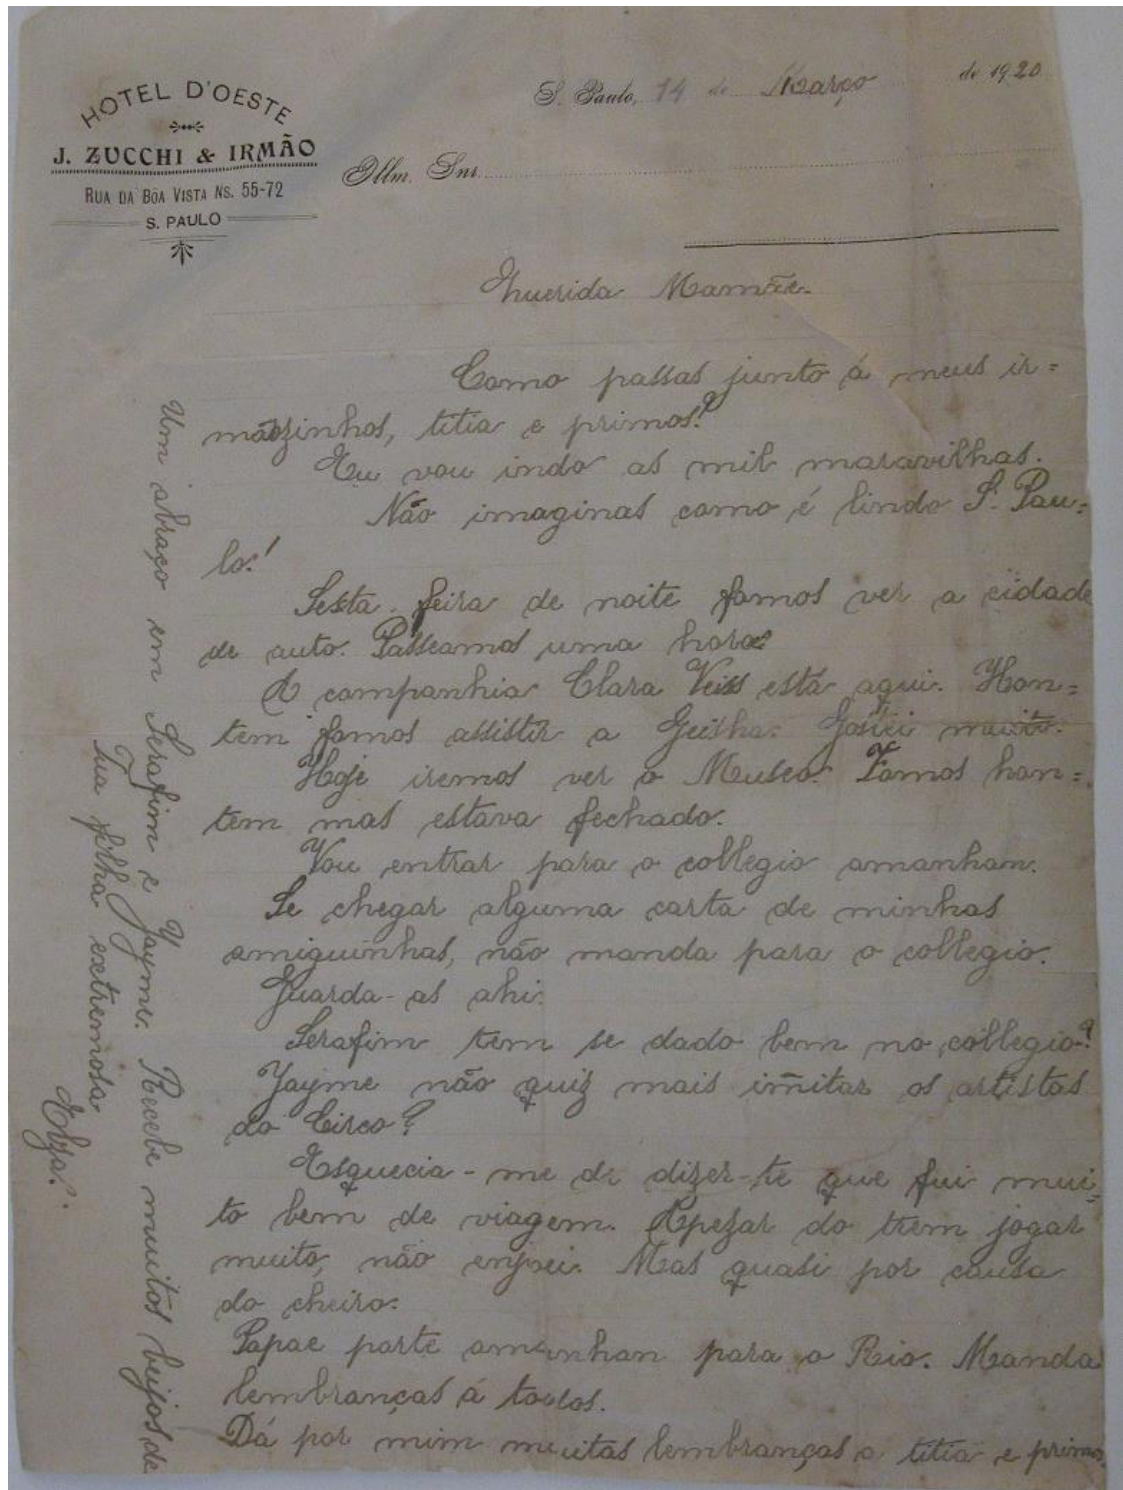 HOTEL D'OESTE
J. ZUCCHI & IRMÃO
RUA DA BÔA VISTA NS. 55-72
S. PAULO
S. Paulo, 14 de Março de 1920
Illm. Snr.
Querida Mamãe.
Como passas junto á meus ir=
mãozinhos, titia e primos?
Eu vou indo as mil maravilhas.
Não imaginas como é lindo S. Pau=
lo!
Sexta feira de noite fomos ver a cidade
de auto. Passeamos uma hora.
A companhia Clara Veiss está aqui. Hon=
tem fomos assistir a Geisha. Gostei muito.
Hoje iremos ver o Museo. Fomos hon=
tem mas estava fechado.
Vou entrar para o collegio amanhan.
Se chegar alguma carta de minhas
amiguinhas, não manda para o collegio.
Guarda-as ahi.
Serafim tem se dado bem no collegio?
Jayme não quiz mais imitar os artistas
do Circo?
Esquecia-me de dizer-te que fui mui=
to bem de viagem. Apezar do trem jogar
muito, não enjoei. Mas quasi por causa
do cheiro.
Papae parte amanhan para o Rio. Manda
lembranças á todos.
Dá por mim muitas lembranças a titia e primos.
Um abraço em Serafim e Jayme. Recebe muitos beijos de
Tua filha extremosa
Elza.